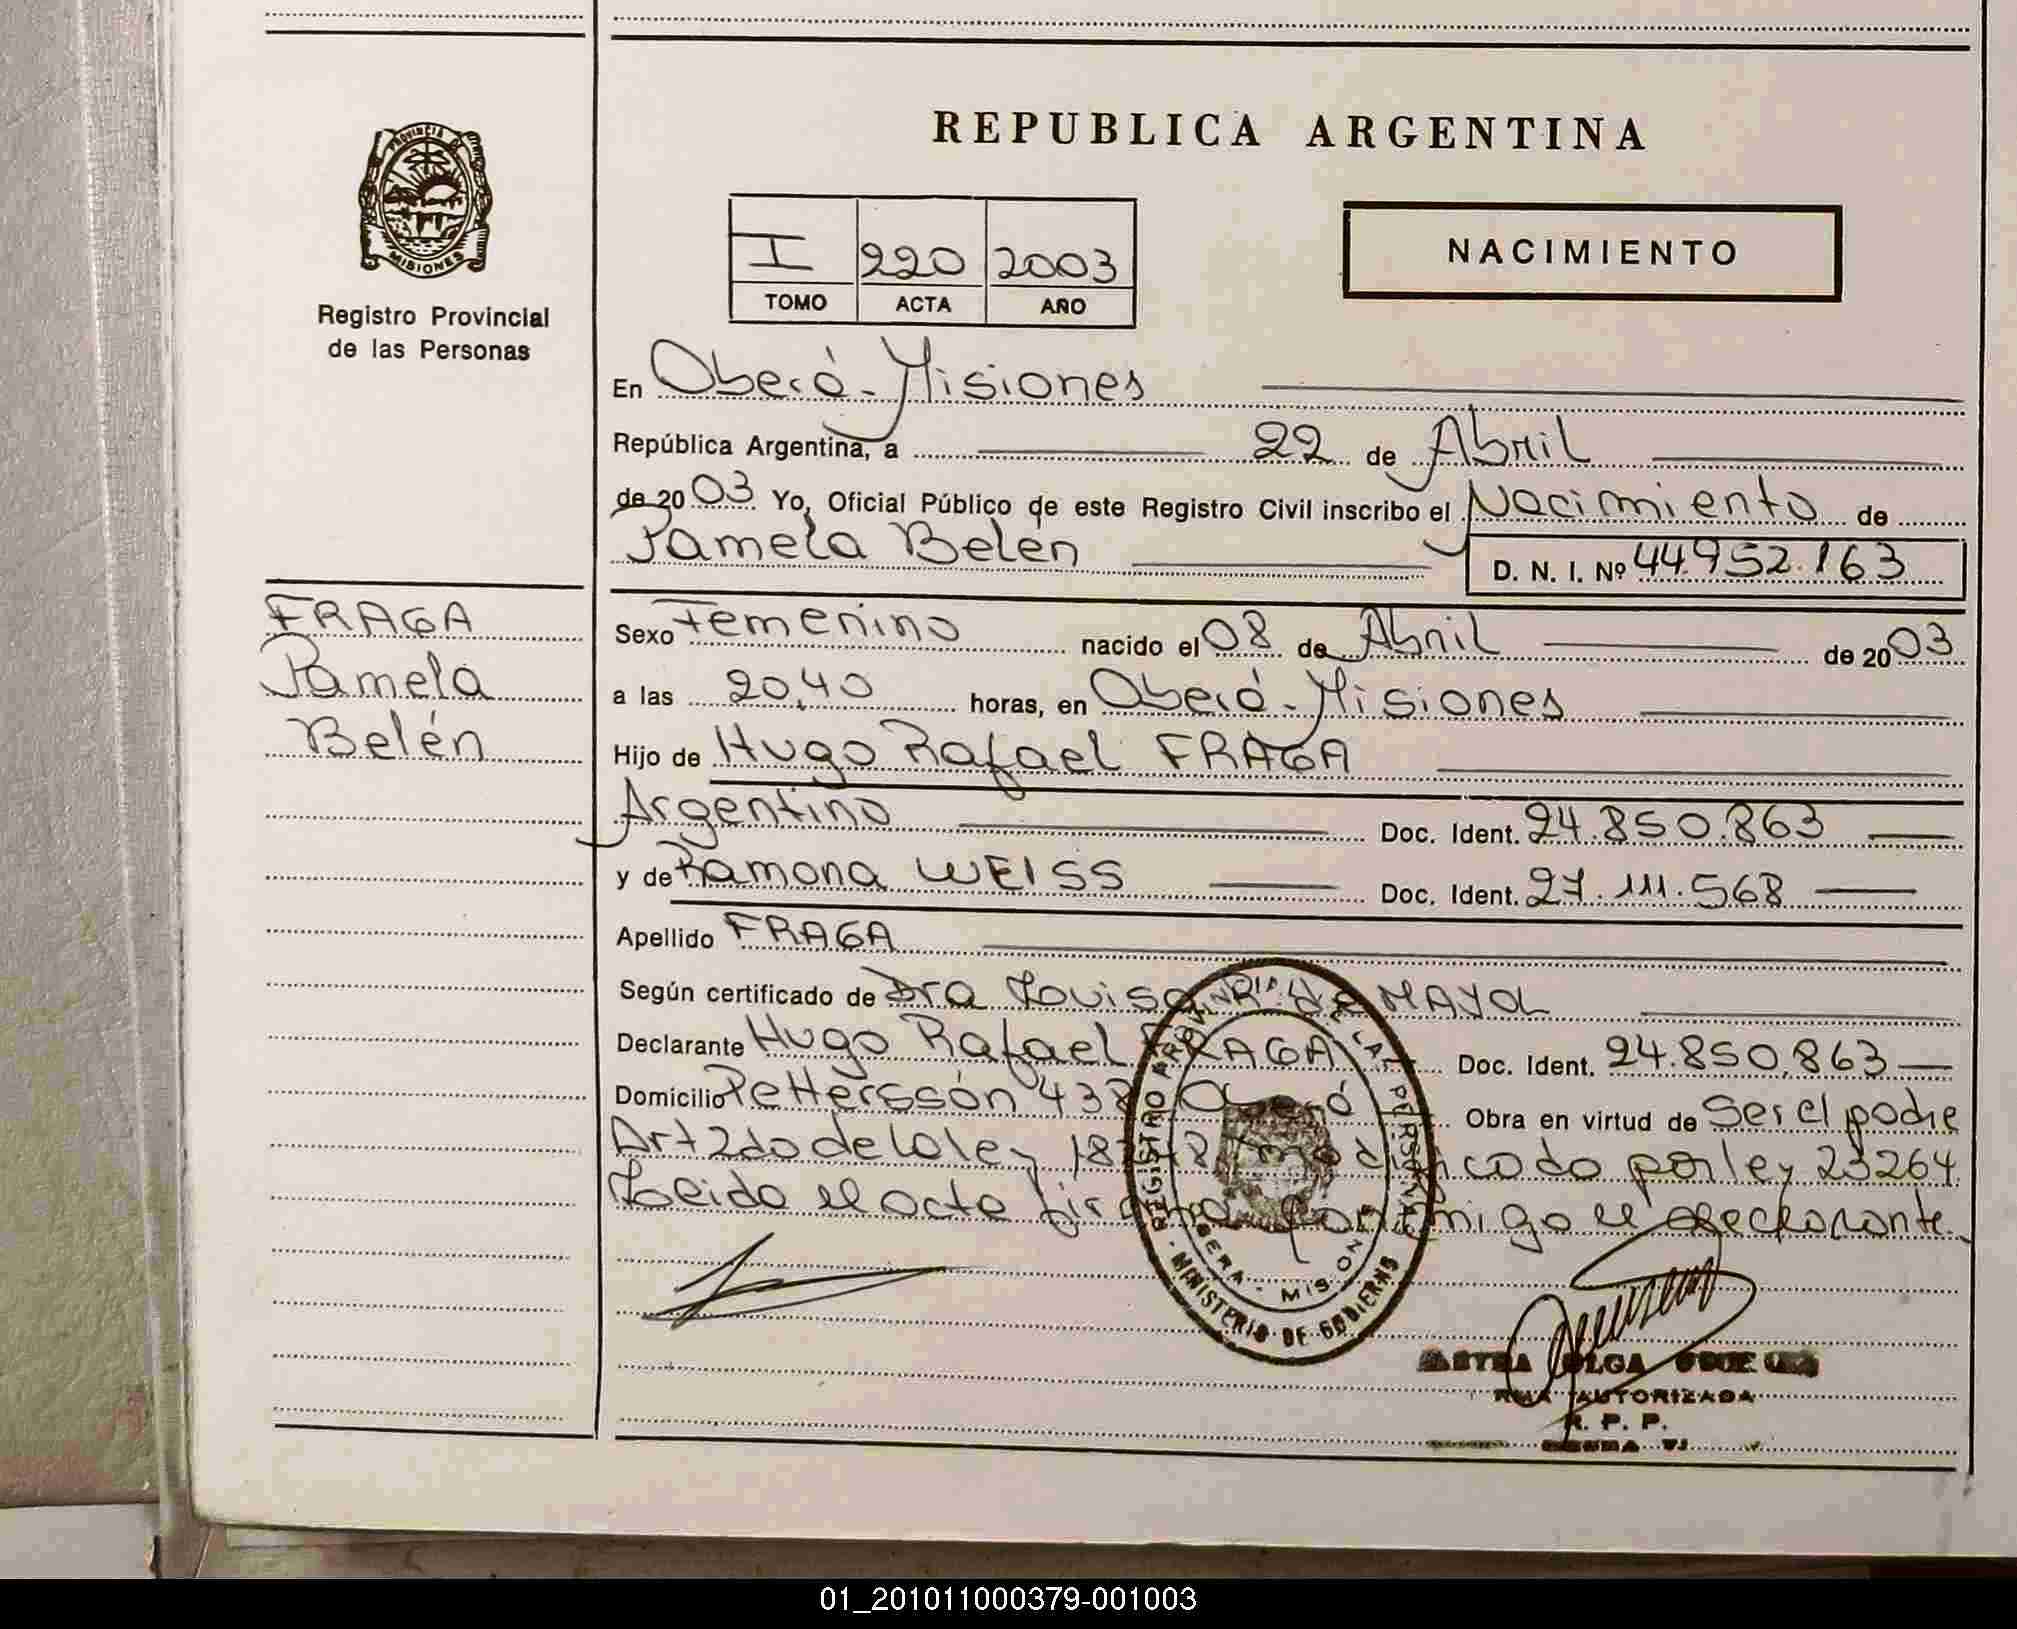 REPUBLICA ARGENTINA
PROVINCIA DE
MISIONES
Registro Provincial
de las Personas
I 220 2003
TOMO ACTA AÑO
NACIMIENTO
En Oberá - Misiones
República Argentina, a 22 de Abril
de 2003 Yo, Oficial Público de este Registro Civil inscribo el Nacimiento de
Pamela Belén D. N. I. Nº 44.952.163
FRAGA
Pamela
Belén
Sexo Femenino nacido el 08 de Abril de 2003
a las 20,40 horas, en Oberá - Misiones
Hijo de Hugo Rafael FRAGA
Argentino Doc. Ident. 24.850.863
y de Ramona WEISS Doc. Ident. 27.111.568
Apellido FRAGA
Según certificado de Dra Louisa de MAYOL
Declarante Hugo Rafael FRAGA Doc. Ident. 24.850.863
Domicilio Pettersson 438 Oberá Obra en virtud de Ser el padre
Art 2do de la ley 18248 modificado por ley 23264.
Leido el acta firma conmigo el declarante.
REGISTRO PROVINCIAL DE LAS PERSONAS
OBERA - MISIONES
MINISTERIO DE GOBIERNO
OLGA
AUTORIZADA
R. P. P.
01_201011000379-001003